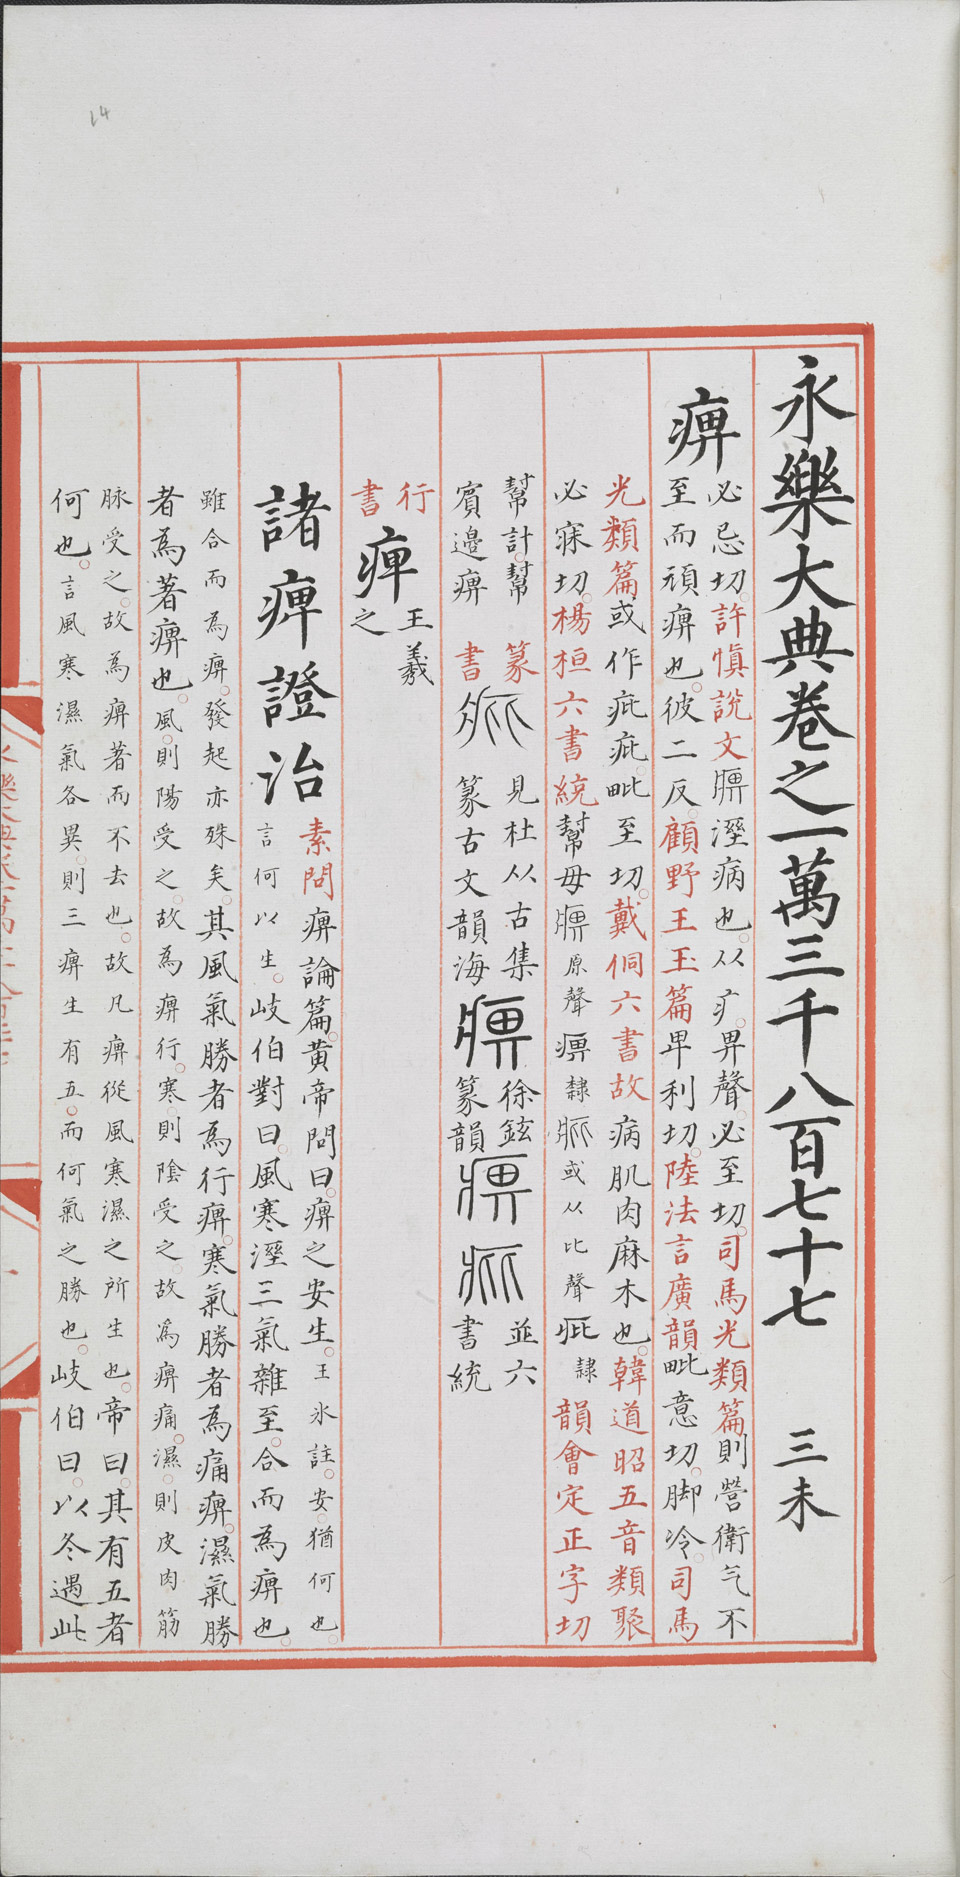 永樂大典卷之一萬三千八百七十七 三未
痹
必忌切許愼說文痹溼病也从疒畀聲必至切司馬光類篇則營衛气不
至而頑痹也彼二反顧野王玉篇畀利切陸法言廣韻毗意切脚冷司馬
光類篇或作疵疵毗至切戴侗六書故病肌肉麻木也韓道昭五音類聚
必寐切楊桓六書統幫母痹原聲痹隸或从比聲疪隸韻會定正字切
幫計幫
賓邊痹
篆書
見杜从古集
篆古文韻海
徐鉉
篆韻
並六
書統
行書
痺
王羲
之
諸痺證治
素問痹論篇黃帝問曰痹之安生王氷註安猶何也
言何以生岐伯對曰風寒溼三氣雜至合而為痹也
雖合而為痹發起亦殊矣其風氣勝者為行痹寒氣勝者為痛痹濕氣勝
者為著痹也風則陽受之故為痹行寒則陰受之故為痹痛濕則皮肉筋
脉受之故為痹著而不去也故凡痹從風寒濕之所生也帝曰其有五者
何也言風寒濕氣各異則三痹生有五而何氣之勝也岐伯曰以冬遇此
24